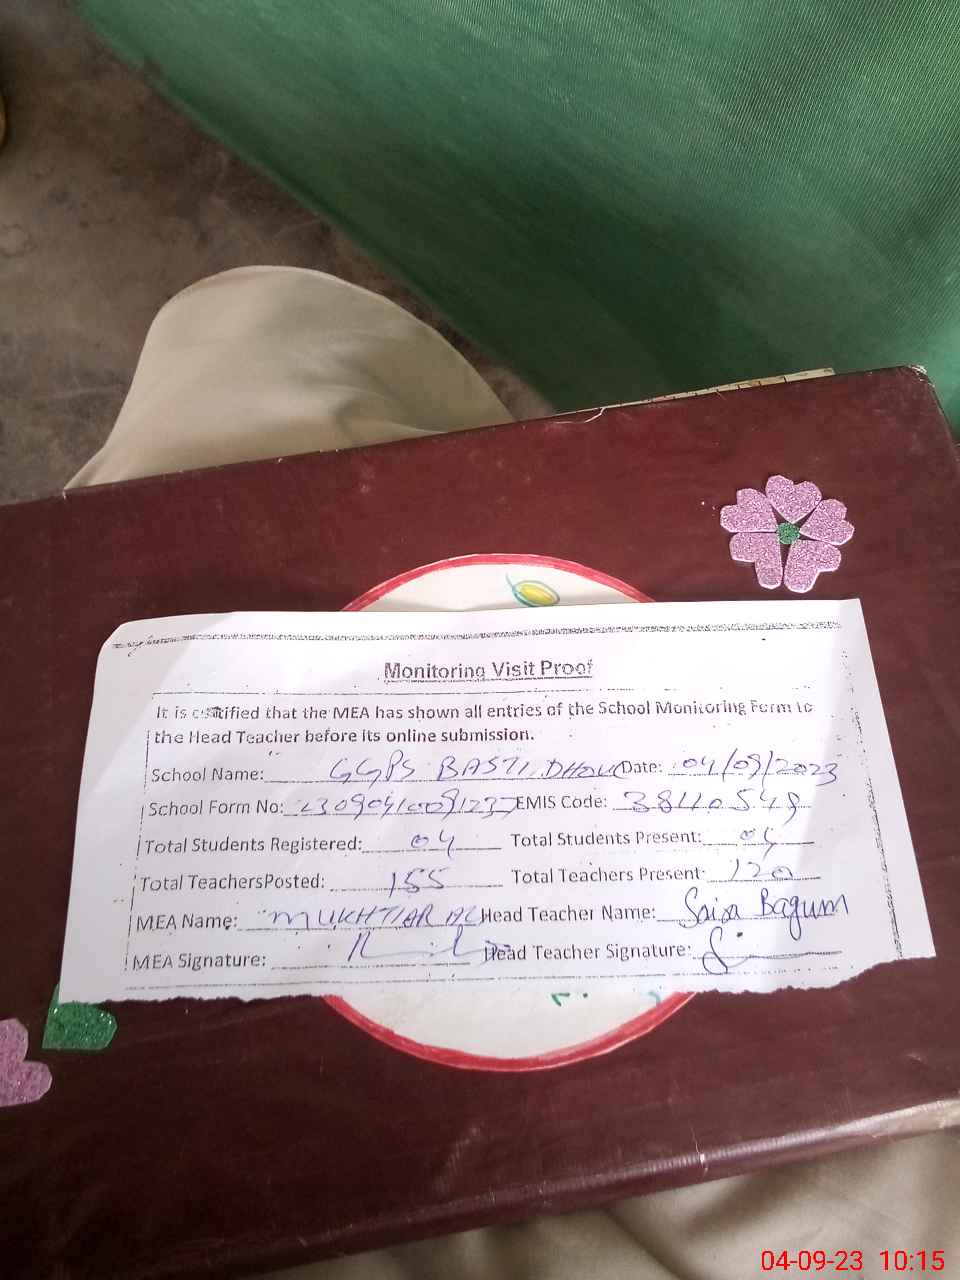 Monitoring Visit Proof
It is certified that the MEA has shown all entries of the School Monitoring Form to
the Head Teacher before its online submission.
School Name: GGPS BASTI Date: 04/09/2023
School Form No: EMIS Code:
Total Students Registered: 04 Total Students Present: 04
Total TeachersPosted: 155 Total Teachers Present: 120
MEA Name: MUKHTIAR Head Teacher Name: Saira Bagum
MEA Signature: Head Teacher Signature:
04-09-23 10:15